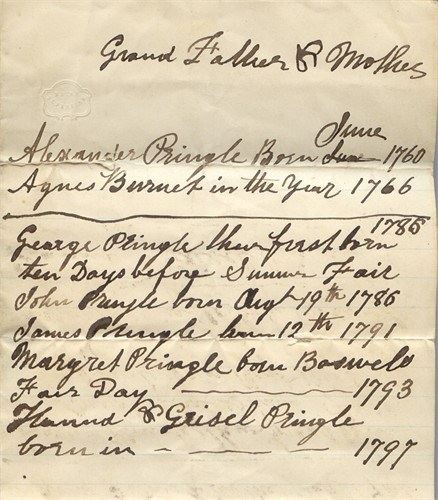 Grand Father & Mother
June
Alexander Pringle Born June 1760
Agnes Burnet in the Year 1766
1785
George Pringle their first born
ten Days before Summer Fair
John Pringle born Augt 19th 1786
James Pringle born 12th 1791
Margret Pringle born Boswels
Fair Day 1793
& Geisel Pringle
born in - 1797